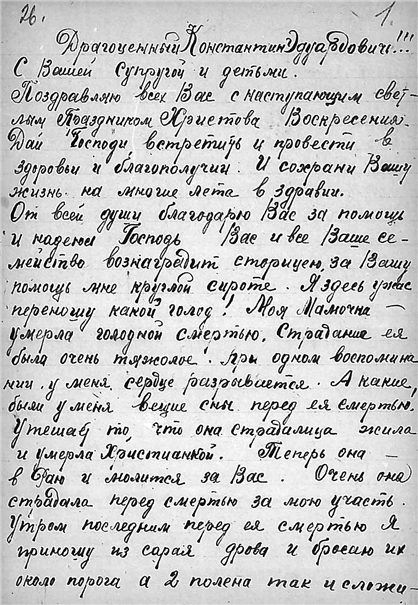 26. 1.
Драгоценный Константин Эдуардович!!!
С Вашей супругой и детьми.
Поздравляю всех Вас с наступающим свет-
лым Праздником Христова Воскресения.
Дай Господи встретить и провести в
здоровьи и благополучии. И сохрани Вашу
жизнь на многие лета в здравии.
От всей души благодарю Вас за помощь
и надеюся Господь Вас и все Ваше се-
мейство вознаградит сторицею, за Вашу
помощь мне круглой сироте. Я здесь ужас
переношу какой голод! Моя Мамочка —
умерла голодной смертью. Страдание ея
было очень тяжолое. При одном воспомина
нии у меня сердце разрывается. А какие
были у меня вещие сны перед ея смертью.
Утешаб то, что она страдалица жила
и умерла Христианкой. Теперь она —
в Раю и молится за Вас. Очень она
страдала перед смертью за мою участь.
Утром последним перед ея смертью Я
приношу из сарая дрова и бросаю их
около порога а 2 полена так и сложи-